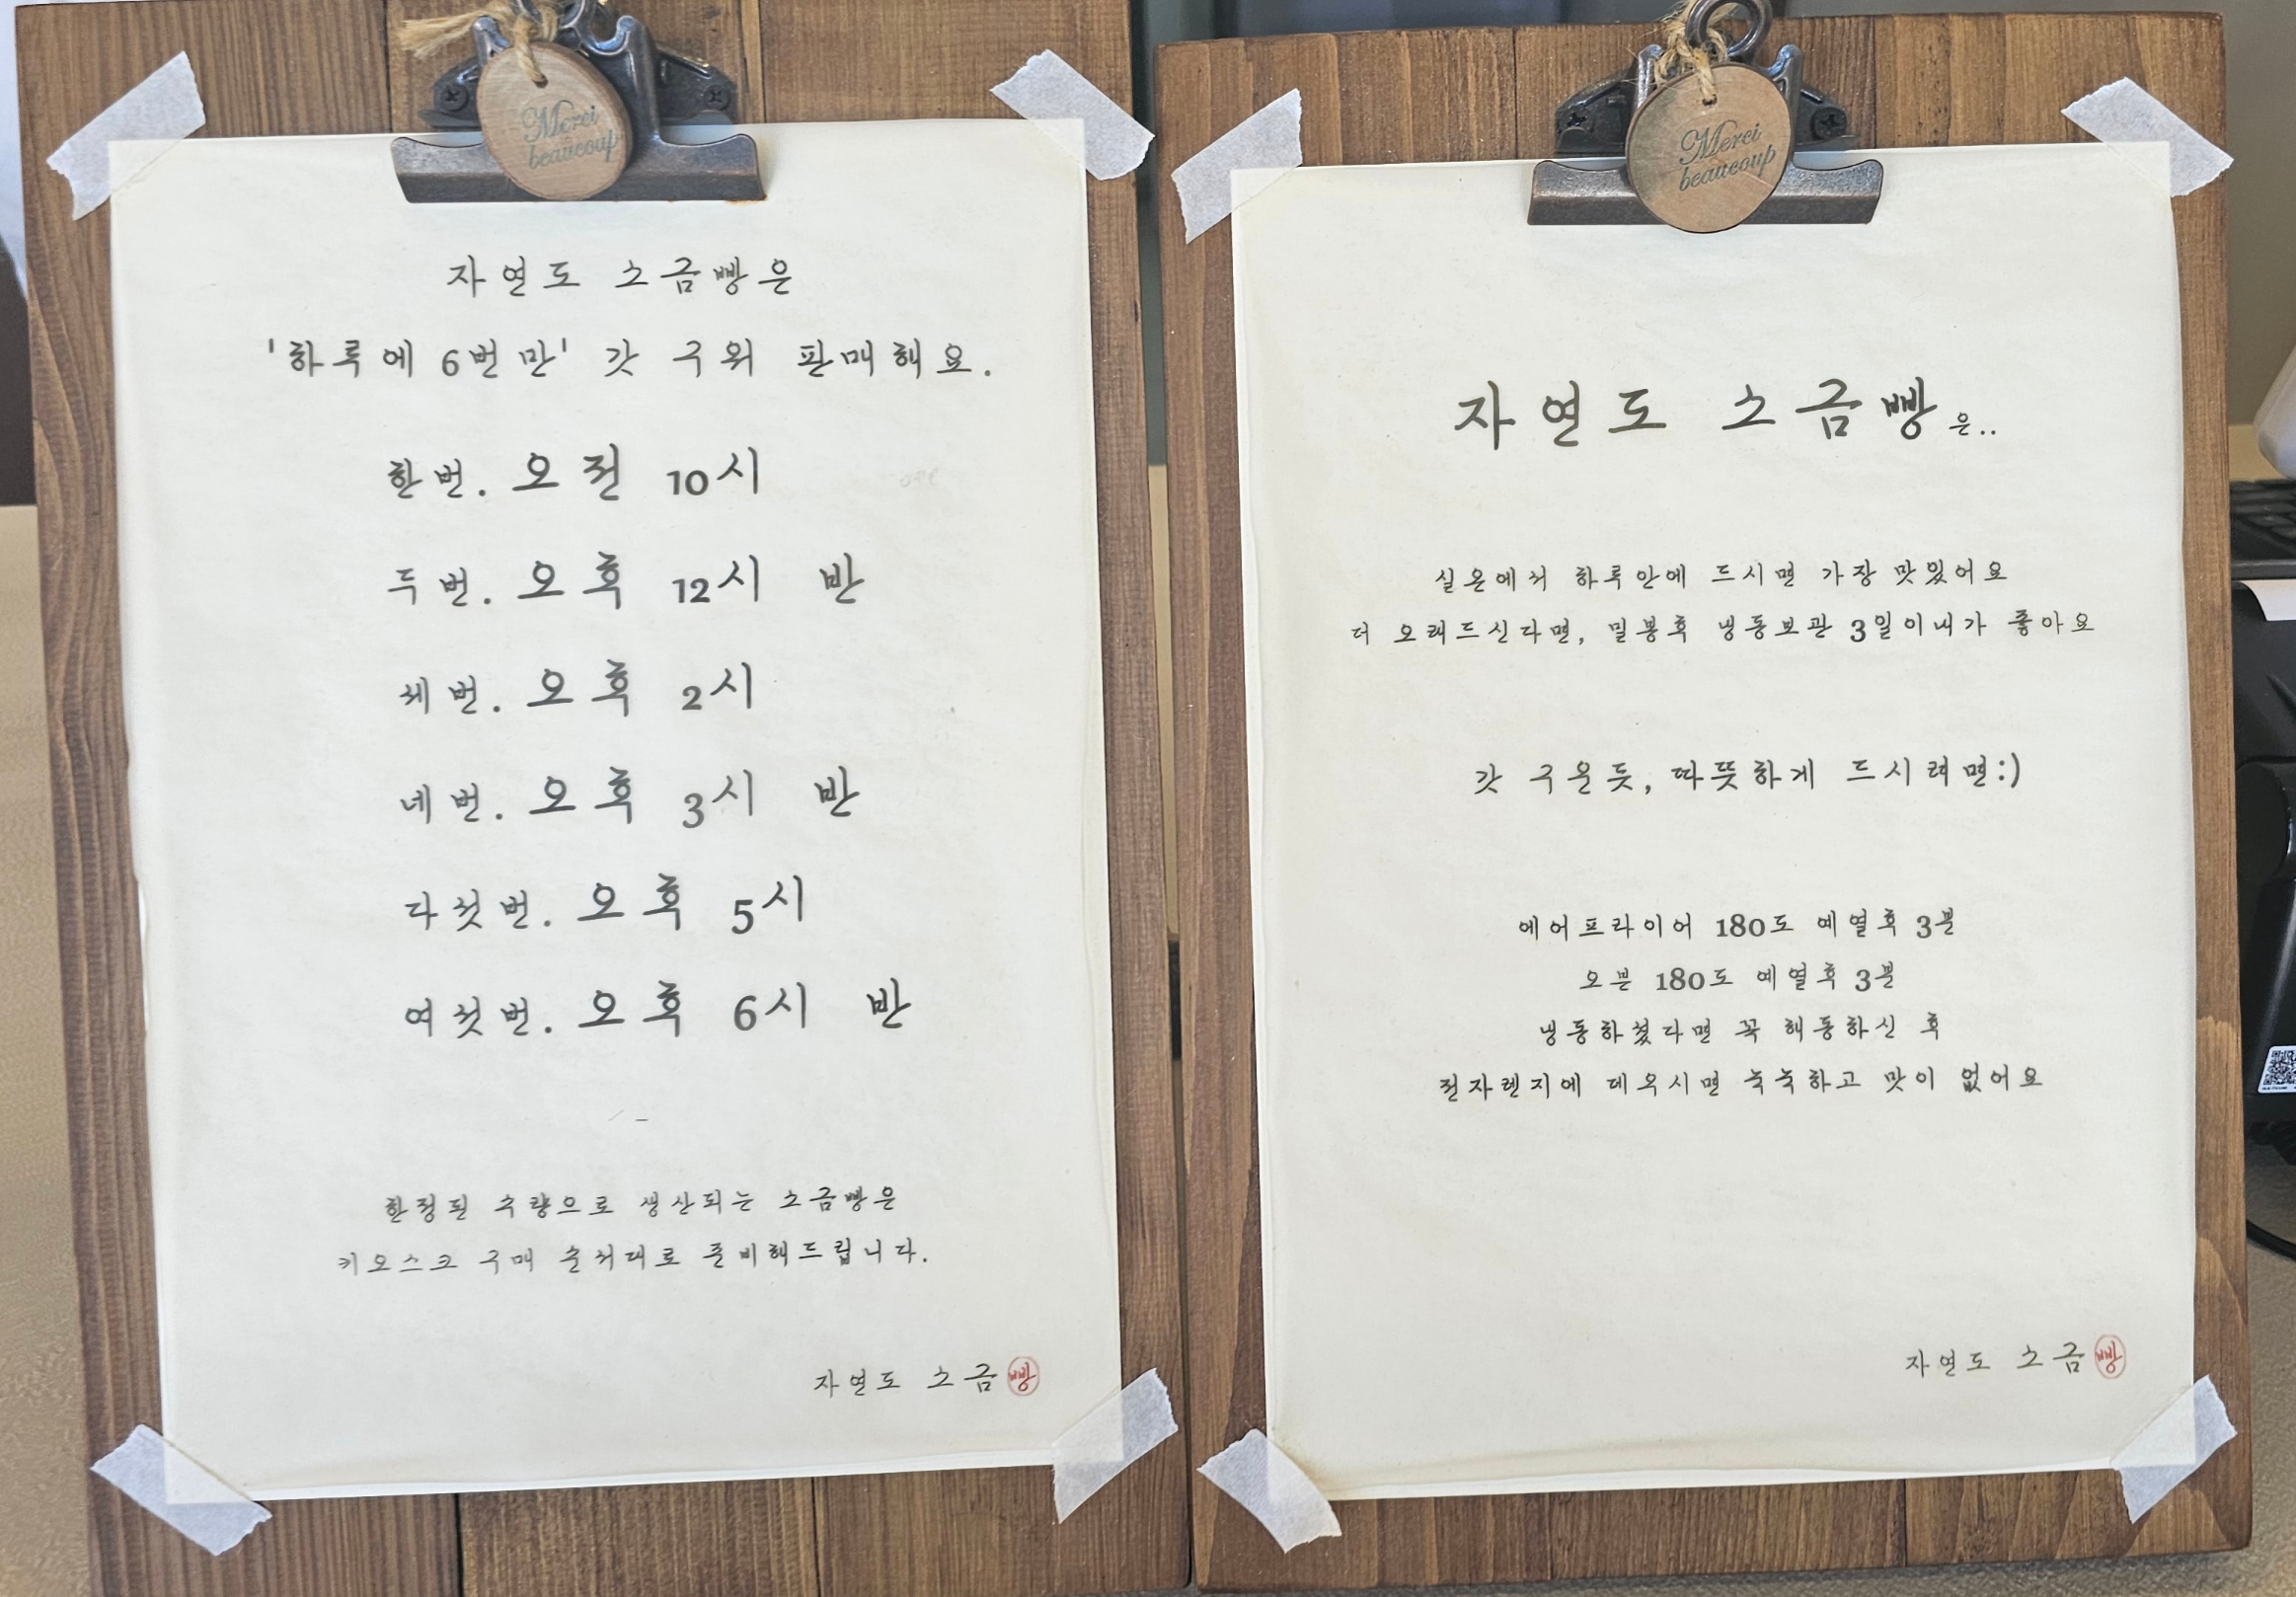 Merci
beaucoup
자연도 소금빵은
'하루에 6번만' 갓 구워 판매해요.
한번. 오전 10시
두번. 오후 12시 반
세번. 오후 2시
네번. 오후 3시 반
다섯번. 오후 5시
여섯번. 오후 6시 반
한정된 수량으로 생산되는 소금빵은
키오스크 구매 순서대로 준비해드립니다.
자연도 소금빵
Merci
beaucoup
자연도 소금빵은..
실온에서 하루안에 드시면 가장 맛있어요
더 오래드신다면, 밀봉후 냉동보관 3일이내가 좋아요
갓 구운듯, 따뜻하게 드시려면:)
에어프라이어 180도 예열후 3분
오븐 180도 예열후 3분
냉동하셨다면 꼭 해동하신 후
전자렌지에 데우시면 눅눅하고 맛이 없어요
자연도 소금빵